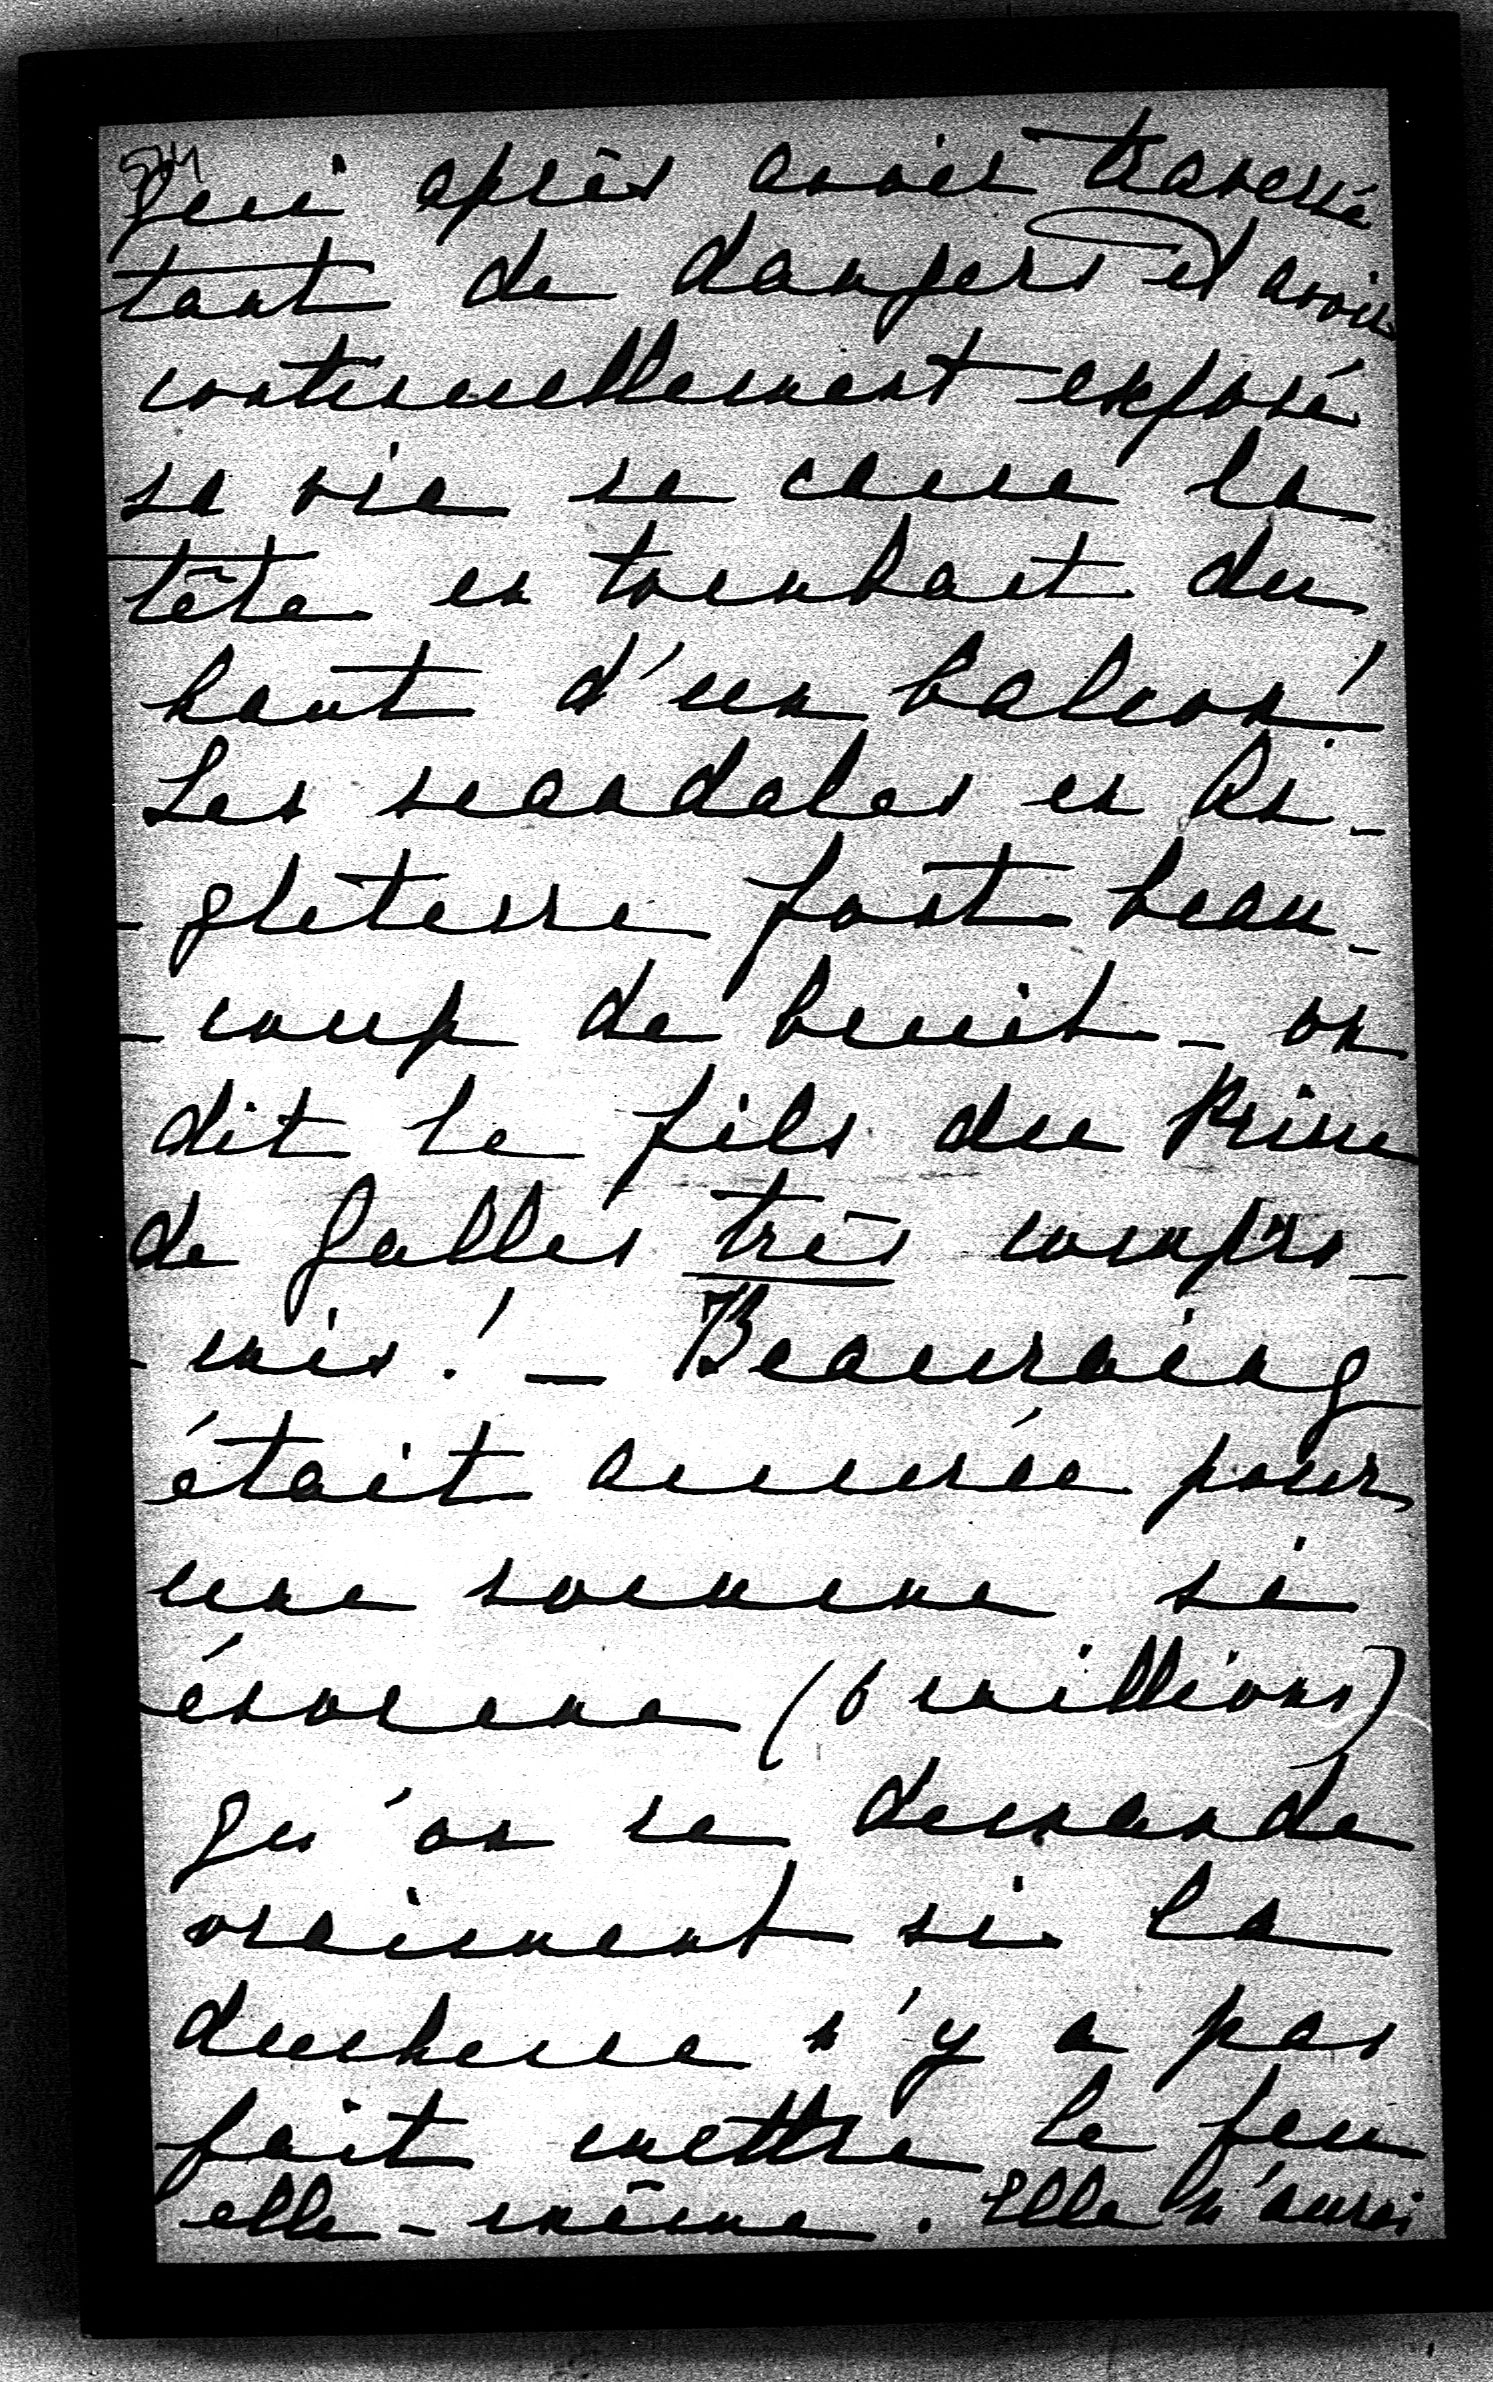 qui après avoir traversé
tant de dangers et avoir
continuellement exposé
sa vie se casse la
tête en tombant du
haut d'un balcon!
Les scandales en An-
-gleterre font beau-
-coup de bruit - on
dit le fils du Prince
de Galles très compro-
-mis! - Beauraing
était assurée pour
une somme si
énorme (6 millions)
qu'on se demande
vraiment si la
duchesse n'y a pas
fait mettre le feu
elle-même. Elle n'aurai